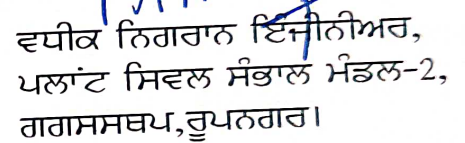 ਵਧੀਕ ਨਿਗਰਾਨ ਇੰਜੀਨੀਅਰ,
ਪਲਾਂਟ ਸਿਵਲ ਸੰਭਾਲ ਮੰਡਲ-2,
ਗਗਸਸਥਪ,ਰੂਪਨਗਰ।